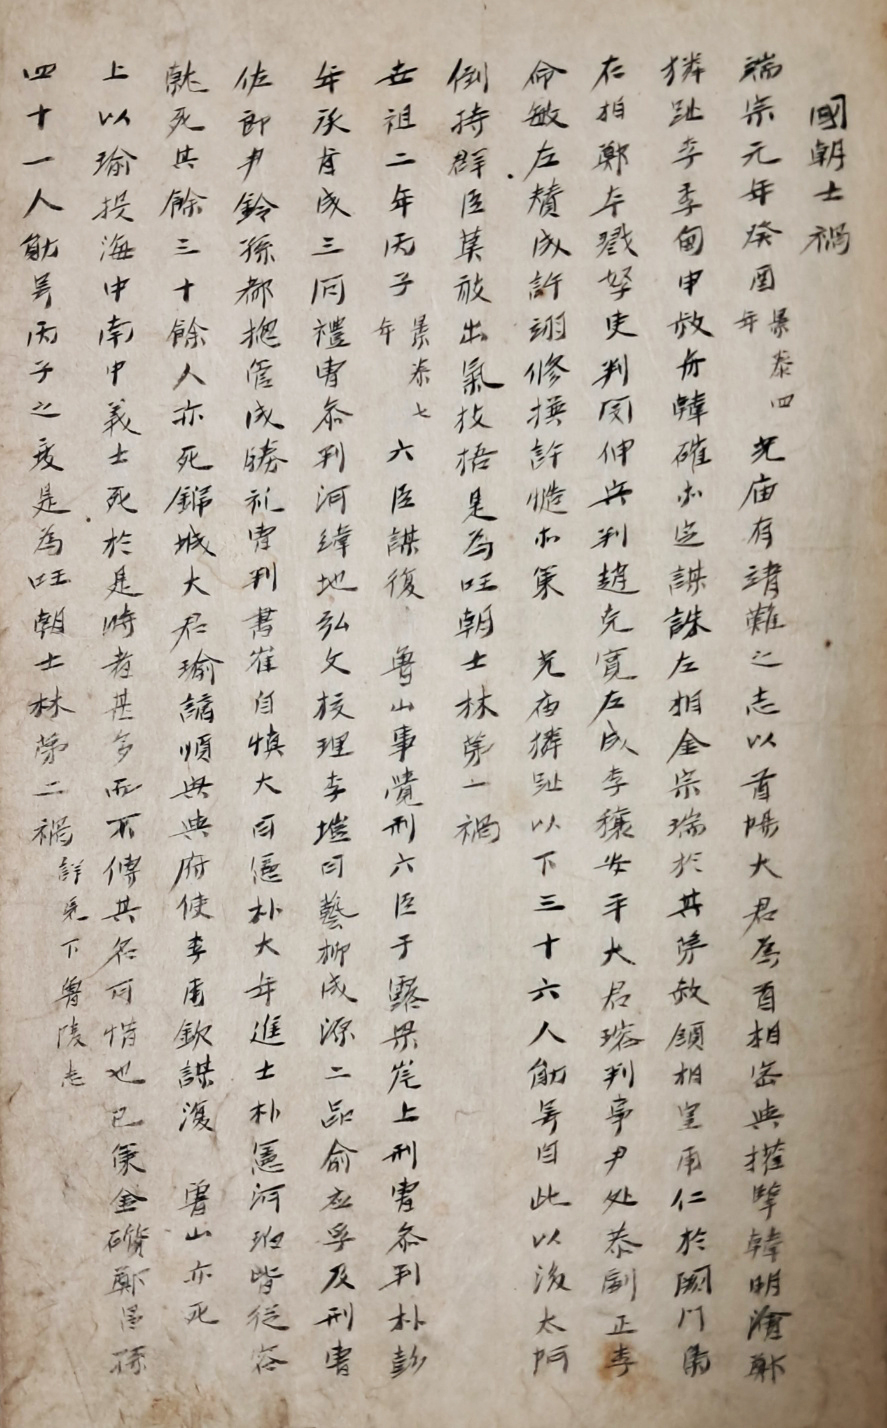 國朝士禍
端宗元年癸酉景泰四年 光庙有靖難之志以首陽大君爲首相密与權擥韓明澮鄭
獜趾李季甸申叔舟韓確亦迋謀誅左相金宗瑞於其第敘領相皇甫仁於闕門商
右相鄭夲戮孥吏判閔伸兵判趙克寛左成李穰安平大君瑢判事尹处恭副正李
命敏左賛成許詡修撰許慥亦策 光庙獜趾以下三十六人勛号自此以後太阿
倒持群臣莫敢出氣枝梧是為吐朝士林第一禍
世祖二年丙子景泰七年 六臣謀復 魯山事覺刑六臣于露梁岸上刑曹參判朴彭
年承旨成三问禮曹叅判河緯地弘文校理李塏司藝柳成源二品俞应孚及刑曹
佐郎尹鈴孫都摠管成勝礼曹判書崔自慎大司憲朴大年進士朴憲河珀皆從容
就死其餘三十餘人亦死錦城大君瑜謫順興与府使李甫欽謀復 魯山亦死
上以瑜投海中南中義士死於是時者甚多而不傳其名可惜也已策金礩鄭昌孫
四十一人勛号丙子之变是為吐朝士林第二禍詳見下魯陵志